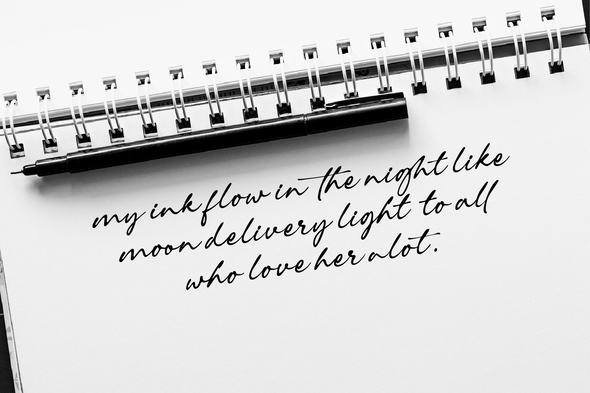 my ink flow in the night like
moon delivery light to all
who love her alot.